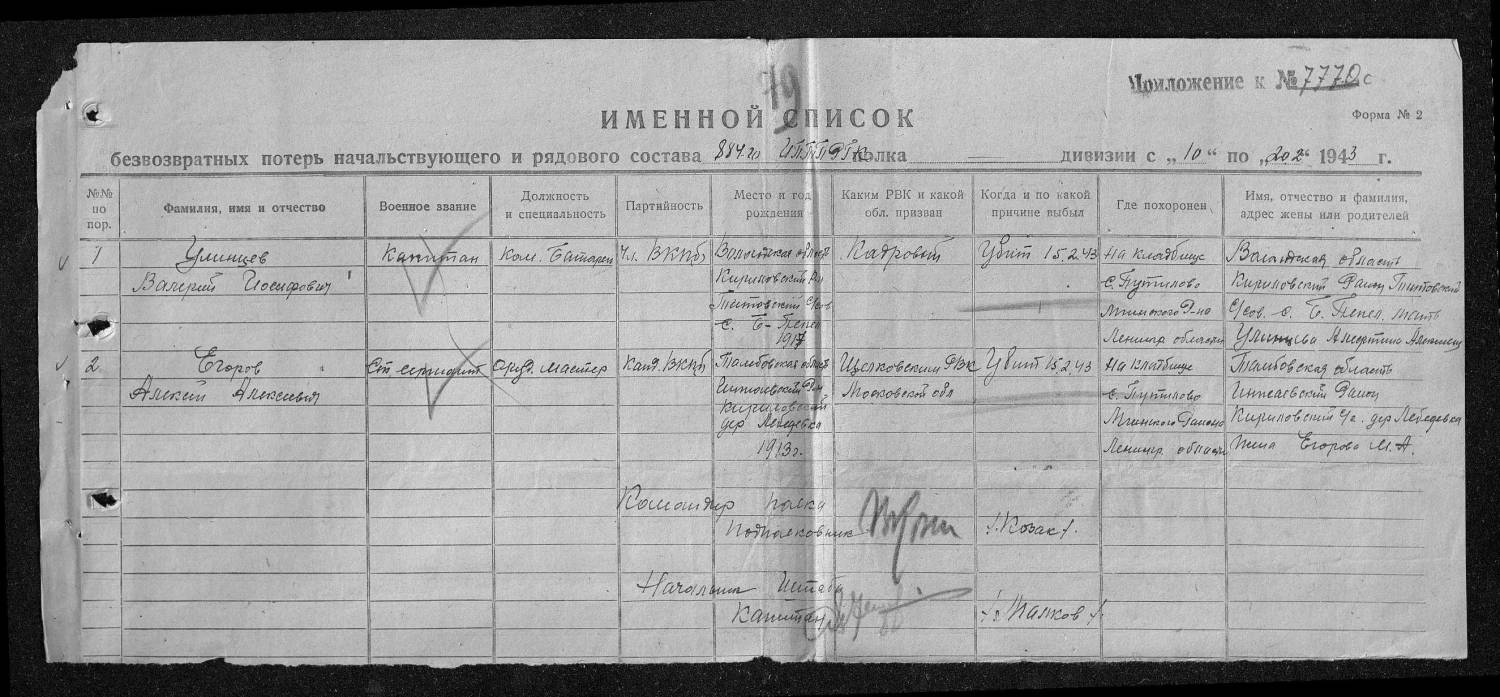 79
Приложение к № 7770с
ИМЕННОЙ СПИСОК
Форма № 2
безвозвратных потерь начальствующего и рядового состава 884 го ИПТП РГК полка — дивизии с „10“ по „20.2“ 1943 г.
№№ по пор.
Фамилия, имя и отчество
Военное звание
Должность и специальность
Партийность
Место и год рождения
Каким РВК и какой обл. призван
Когда и по какой причине выбыл
Где похоронен
Имя, отчество и фамилия, адрес жены или родителей
1 Улинцев Капитан Ком. Батареи Чл. ВКПб Вологодская область Кадровый Убит 15.2.43 На кладбище Вологодская область
Валерий Иосифович Кириловский с. Путилово Кириловский Район Титовский
Титовский С/сов Мгинского Р-на С/сов. с. Б. Пепел. Мать
с. Б-Пепел Ленингр области Улинцева
1917
2. Егоров Ст сержант Оруд. мастер Канд. ВКПб Тамбовская область Щелковским РВК Убит 15.2.43 На кладбище Тамбовская область
Алексей Алексеевич Московской обл с. Путилово Район
Кириловский Мгинского Района Кириловский дер Лебедевка
дер Лебедевка Ленингр области Жена Егорова М. А.
1913 г.
Командир полка
Подполковник /Козак/.
Начальник Штаба
Капитан /Малков/.